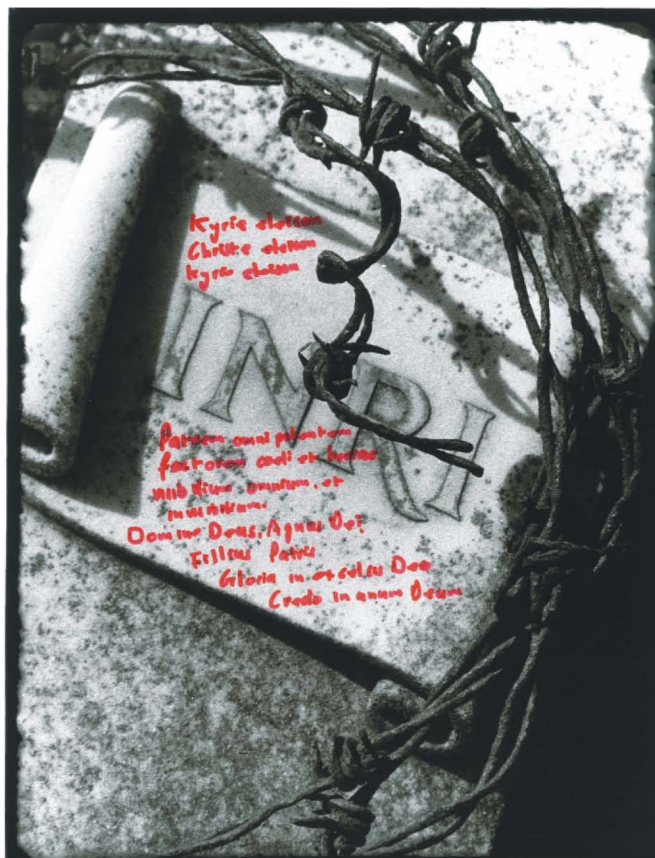 Kyrie eleison
Christe eleison
Kyrie eleison
INRI
Patrem omnipotentem
factorem coeli et terrae
visibilium omnium, et
invisibilium
Domine Deus, Agnus Dei
Filius Patris
Gloria in excelsis Deo
Credo in unum Deum